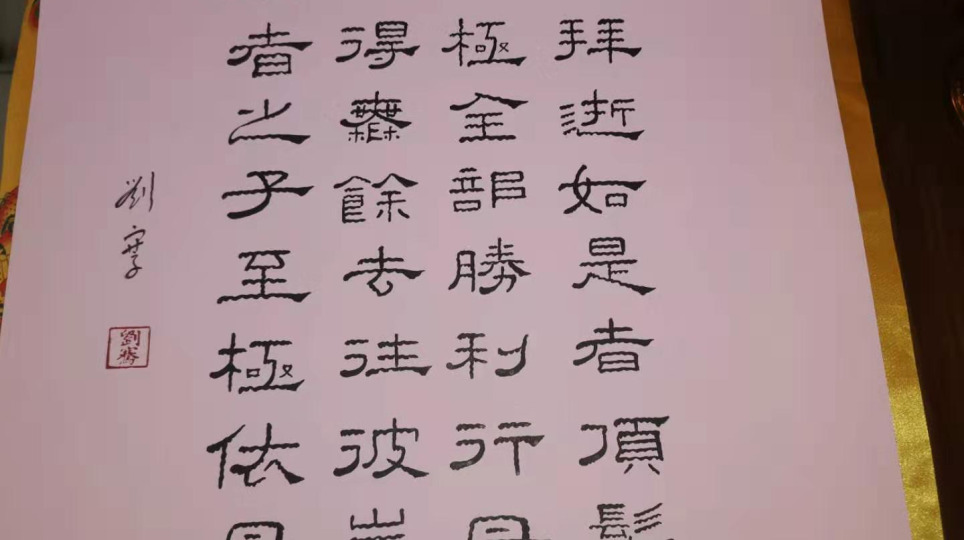 拜逝如是者頂
極全部勝利行
得橆餘去往彼
者之子至極依
劉
劉